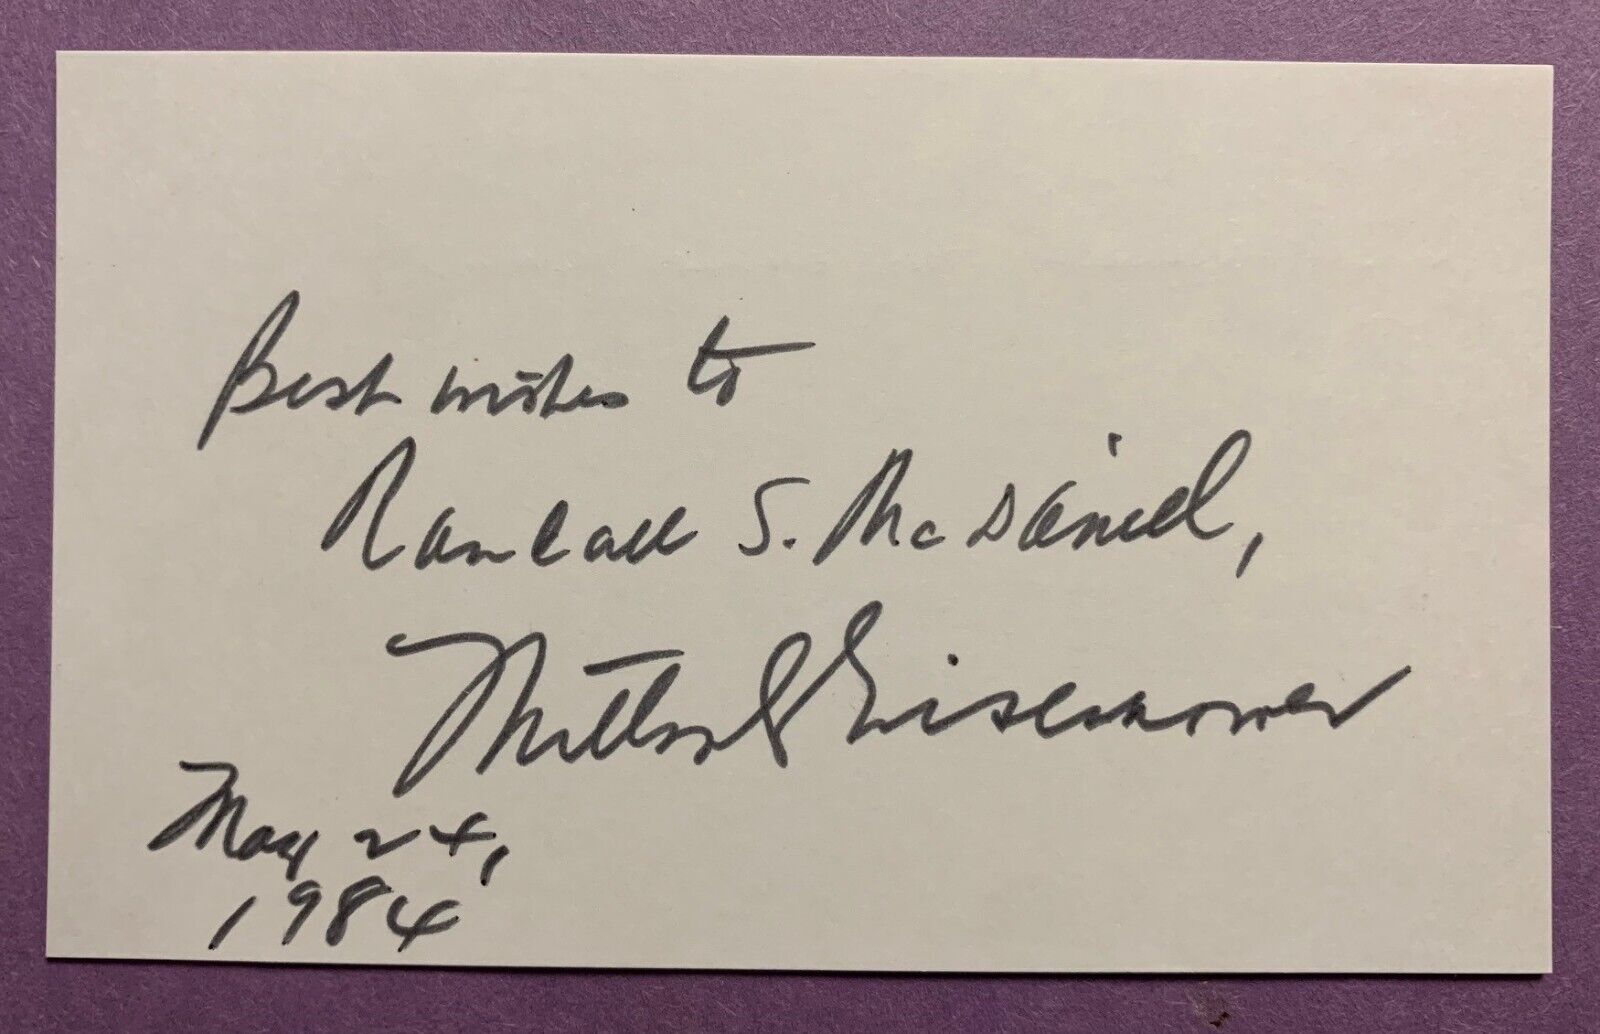 Best wishes to
Randall S. McDaniel,
Milton S Eisenhower
May 24,
1984